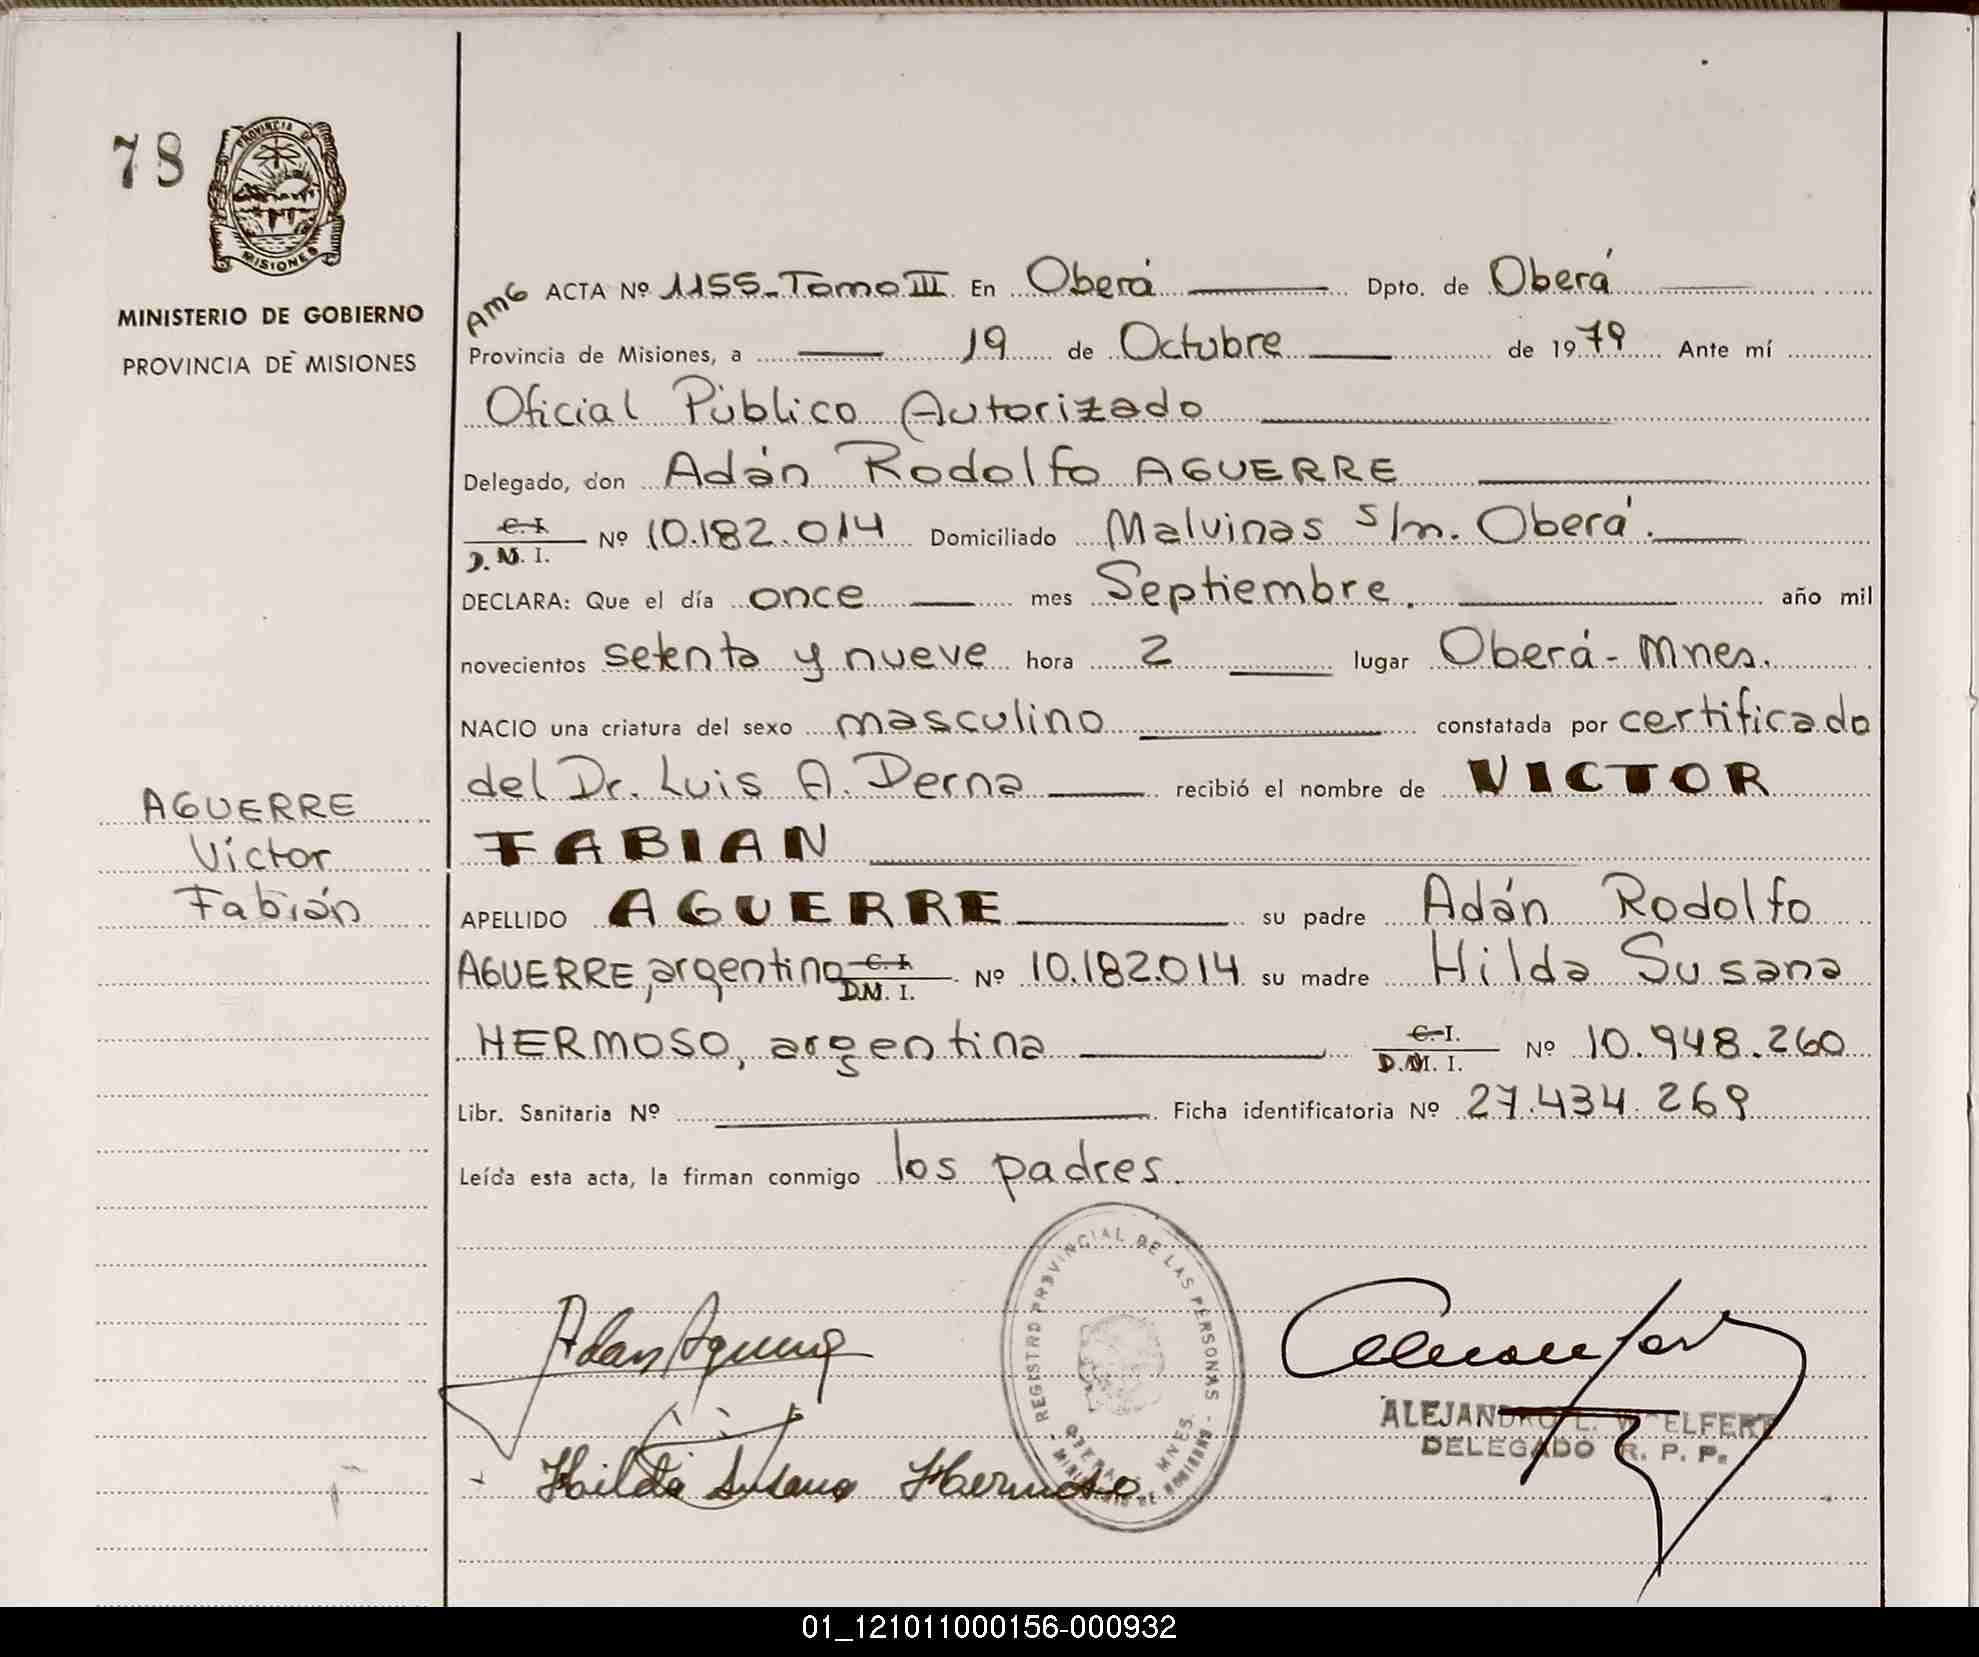 78
PROVINCIA D
MISIONES
MINISTERIO DE GOBIERNO
PROVINCIA DE MISIONES
AMG ACTA Nº 1155_Tomo III En Oberá Dpto. de Oberá
Provincia de Misiones, a 19 de Octubre de 1979 Ante mí
Oficial Público Autorizado
Delegado, don Adán Rodolfo AGUERRE
C. I.
D. M. I. Nº 10.182.014 Domiciliado Malvinas s/n. Oberá.
DECLARA: Que el día once mes Septiembre. año mil
novecientos setenta y nueve hora 2 lugar Oberá - Mnes.
NACIO una criatura del sexo masculino constatada por certificado
del Dr. Luis A. Derna recibió el nombre de VICTOR
FABIAN
AGUERRE
Victor
Fabián
APELLIDO AGUERRE su padre Adán Rodolfo
AGUERRE, argentino C. I. D.M. I. Nº 10.182.014 su madre Hilda Susana
HERMOSO, argentina C. I. D.M. I. Nº 10.948.260
Libr. Sanitaria Nº Ficha identificatoria Nº 27.434.269
Leída esta acta, la firman conmigo los padres.
REGISTRO PROVINCIAL DE LAS PERSONAS
OBERA MNES.
Adan Aguerre
Hilda Susana Hermoso
ALEJANDRO L. W ELFERT
DELEGADO R. P. P.
01_121011000156-000932